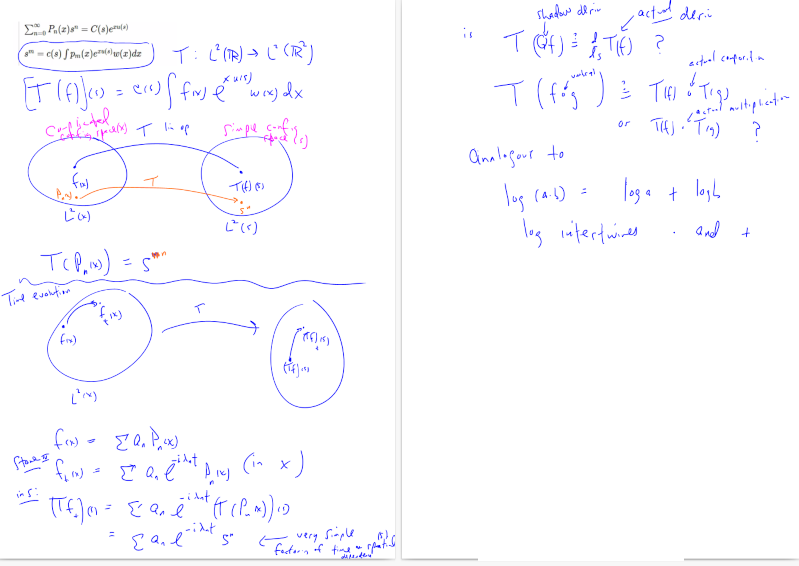 ∑_{n=0}^{∞} P_n(x)s^n = C(s)e^{xu(s)}
s^m = c(s) ∫ p_m(x)e^{xu(s)}w(x)dx
T : L²(ℝ) → L²(ℝ²)
[T(f)](s) = c(s) ∫ f(x) e^{x u(s)} w(x) dx
Complicated config space(x)
T lin op
Simple config space (s)
f(x)
T(f)(s)
P_n(x)
T
s^n
L²(x)
L²(s)
T(P_n(x)) = s^n
Time evolution
f(x)
f_t(x)
T
(Tf)_t(s)
(Tf)(s)
L²(x)
f(x) = ∑ a_n P_n(x)
f_t(x) = ∑ a_n e^{-iλ_n t} P_n(x) (in x)
in s:
(Tf_t)(s) = ∑ a_n e^{-iλ_n t} (T(P_n(x)))(s)
= ∑ a_n e^{-iλ_n t} s^n
← very simple (s)
factor'n of time &
dependence
is
shadow deriv
actual deriv
T(Qf) ≟ d/ds T(f) ?
umbral
actual composition
T(f∘g) ≟ T(f) ∘ T(g)
actual multiplication
or T(f) · T(g) ?
Analogous to
log (a·b) = log a + log b
log intertwines · and +